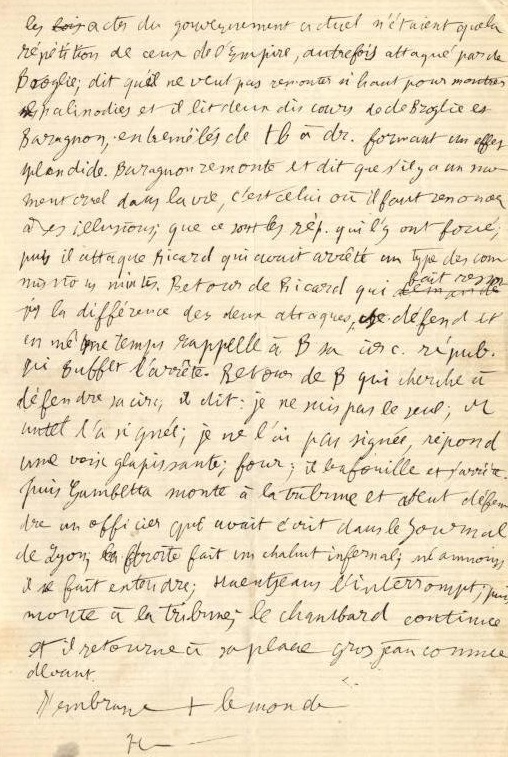 les lois actes du gouvernement actuel n'étaient que la
répétition de ceux de l'Empire, autrefois attaqué par de
Broglie; dit qu'il ne veut pas remonter si haut pour montrer
palinodies et il lit deux discours de de Broglie et
Baragnon, entremêlés de tb à dr. formant un effet
splendide. Baragnon remonte et dit que s'il y a un mo
ment cruel dans la vie, c'est celui où il faut renoncer
à ses illusions; que ce sont les rép. qui l'y ont forcé;
puis il attaque Ricard qui avait arrêté un type des com
missions mixtes. Retour de Ricard qui demande fait ressor
tir la différence des deux attaques, se défend et
en même temps rappelle à B sa circ. répub.
qui Buffet l'arrête. Retour de B qui cherche à
défendre sa circ; il dit: je ne suis pas le seul; M
untel l'a signée; je ne l'ai pas signée, répond
une voix glapissante; four; il bafouille et s'arrête.
Puis Gambetta monte à la tribune et veut défen
dre un officier qui avait écrit dans le Journal
de Lyon; la droite fait un chahut infernal; néanmoins
il se fait entendre; Haentjens l'interrompt, puis
monte à la tribune; le chambard continue
et il retourne à sa place gros jean comme
devant.
J'embrasse + le monde